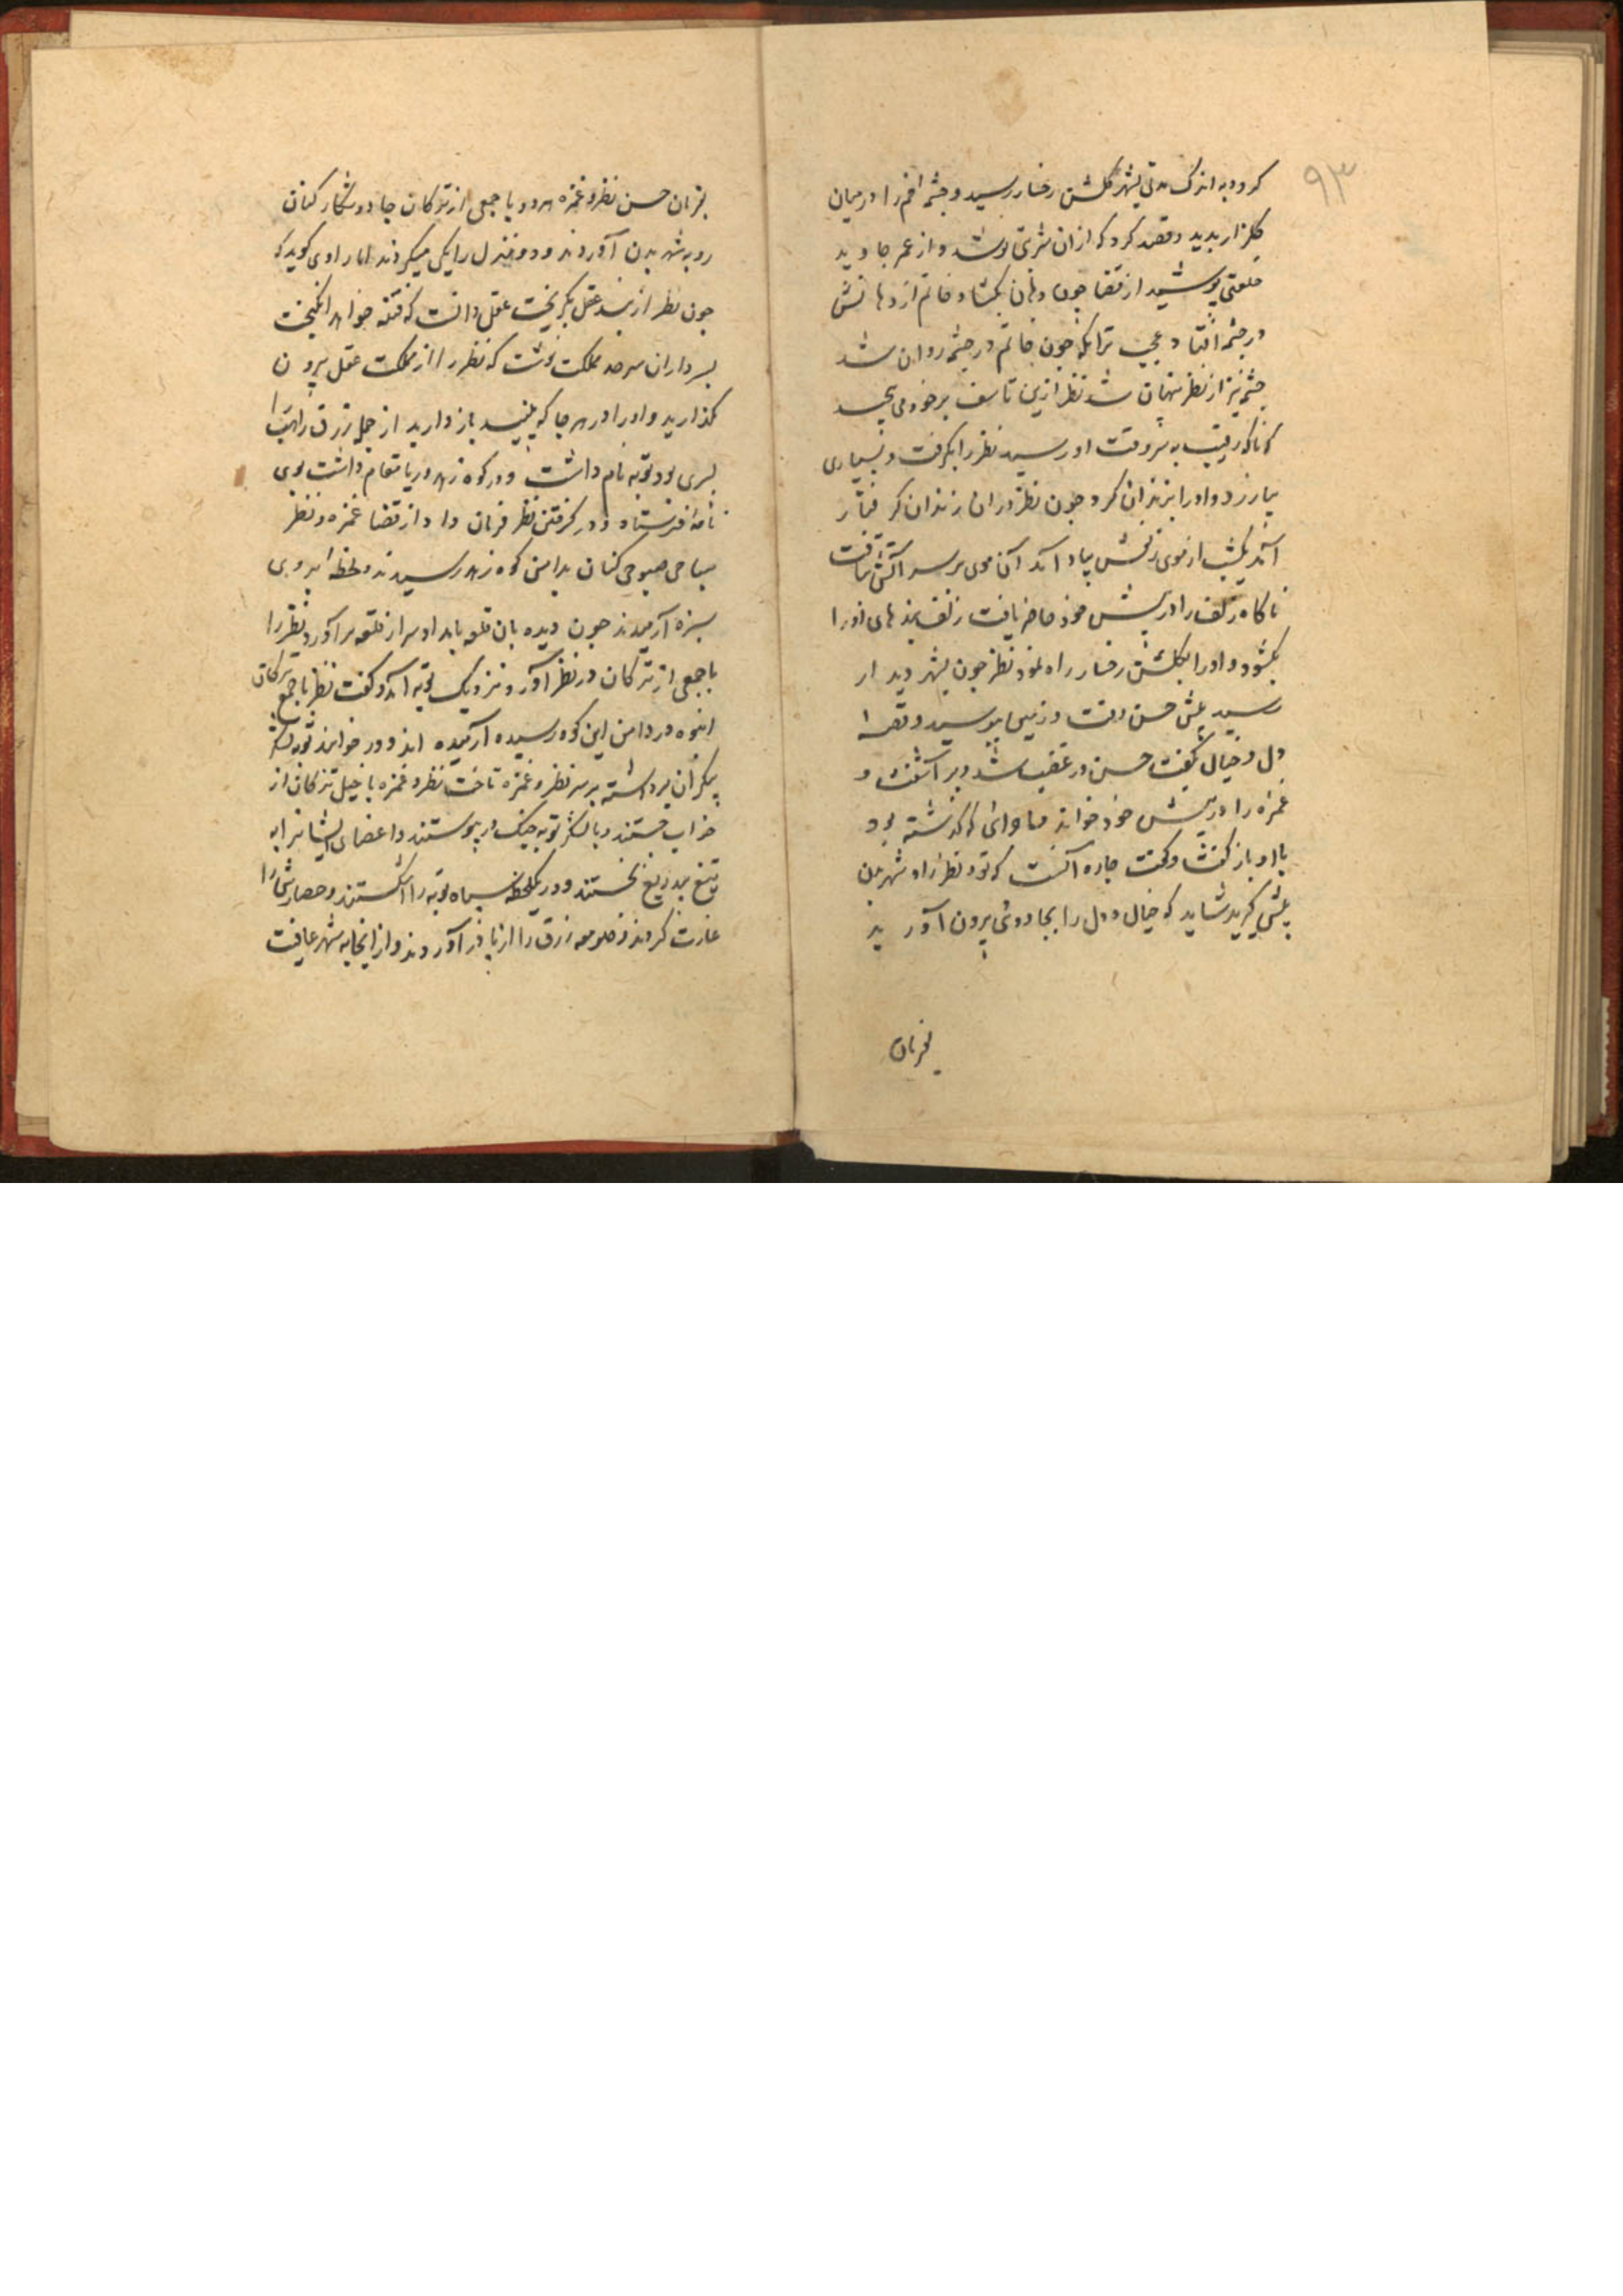 ۹۳
کرد و به اندک مدتی بشهر گلشن رخسار رسید و چشمه فم را در میان
گلزار بدید و قصد کرد که از ان شربتی نوشد و از عمر جاوید
خلعتی پوشید از قضا چون دهان بکشاد خاتم از دهانش
در چشمه افتاد و عجب ترانکه چون خاتم در چشمه روان شد
چشمه نیز از نظر پنهان شد نظر ازین تاسف بر خود می پیچید
که ناکه رقیب به سروقت او رسید نظر را بکرفت و بسیاری
بیازرد و اورا بزندان کرد چون نظر دران زندان کرفتار
آمد یکشب از موی زلفش یاد آمد آن موی بر سر آتش تافت
ناکاه زلف را در پیش خود حاضر یافت زلف بندهای اورا
بکشود و اورا بکلشن رخسار راه نمود نظر چون بشهر دیدار
رسید پیش حسن رفت و زمین ببوسید و قصه
دل و خیال بگفت حسن در غضب شد و بر آشفت و
غمزه را در پیش خود خواند ماجرائی که گذشته بود
با او باز گفت و گفت چاره آنست که تو و نظر راه شهر بدن
پیش گیرید شاید که خیال و دل را بجادوئی بیرون آورید
بفرمان
بفرمان حسن نظر و غمزه هر دو با جمعی از ترکان جادو شکار کنان
رو به شهر بدن آوردند و دو منزل را یکی میکردند اما راوی گوید که
چون نظر از بند عقل بگریخت عقل دانست که فتنه خواهد انگیخت
بسرداران سرحد مملکت نوشت که نظر را از مملکت عقل بیرون
نگذارید و اورا در هر جا که بینید باز دارید از جمله زرق راهب را
پسری بود توبه نام داشت و در کوه زهد و ریا مقام داشت بوی
نامه فرستاد و در گرفتن نظر فرمان داد از قضا غمزه و نظر
صباحی صبوحی کنان بدامن کوه زهد رسیدند و لحظه بر روی
سبزه آرمیدند چون دیده بان قلعه بامداد سر از قلعه برآورد نظر را
با جمعی از ترکان در نظر آورد نزدیک توبه آمد و گفت نظر با جمع ترکان
انبوه در دامن این کوه رسیده آرمیده اند و در خوابند توبه لشکر
بیکران برداشته بر سر نظر و غمزه تاخت نظر و غمزه با خیل ترکان از
خواب جستند و با لشکر توبه بجنگ در پیوستند و اعضای ایشانرا به
تیغ بیدریغ بخستند و در یکلحظه سپاه توبه را شکستند و حصار شانرا
غارت کردند و صومعه زرق را از پا در آوردند و از انجا به شهر عافیت